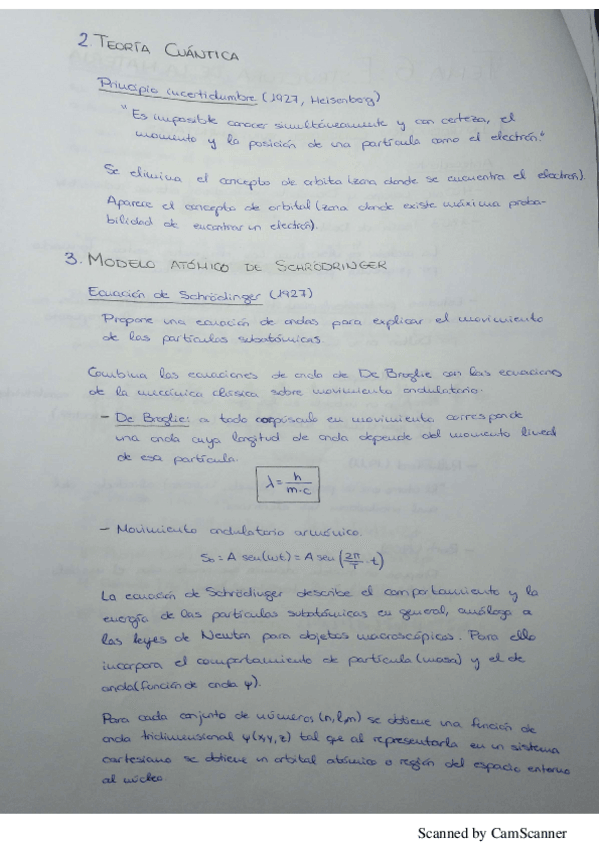 2. TEORÍA CUÁNTICA
Principio incertidumbre (1927, Heisenberg)
"Es imposible conocer simultáneamente y con certeza, el
momento y la posición de una partícula como el electrón."
Se elimina el concepto de orbita (zona donde se encuentra el electrón).
Aparece el concepto de orbital (zona donde existe máxima proba-
bilidad de encontrar un electrón).
3. MODELO ATÓMICO DE SCHRÖDRINGER
Ecuación de Schrödinger (1927)
Propone una ecuación de ondas para explicar el movimiento
de las partículas subatómicas.
Combina las ecuaciones de onda de De Broglie con las ecuaciones
de la mecánica clásica sobre movimiento ondulatorio.
- De Broglie: a todo corpúsculo en movimiento corresponde
una onda cuya longitud de onda depende del momento lineal
de esa partícula.
λ = h / m·c
- Movimiento ondulatorio armónico.
So = A sen(wt) = A sen (2π/T · t)
La ecuación de Schrödinger describe el comportamiento y la
energía de las partículas subatómicas en general, análoga a
las leyes de Newton para objetos macroscópicos. Para ello
incorpora el comportamiento de partícula (masa) y el de
onda (función de onda ψ).
Para cada conjunto de números (n, l, m) se obtiene una función de
onda tridimensional ψ(x,y,z) tal que al representarla en un sistema
cartesiano se obtiene un orbital atómico o región del espacio entorno
al núcleo.
Scanned by CamScanner